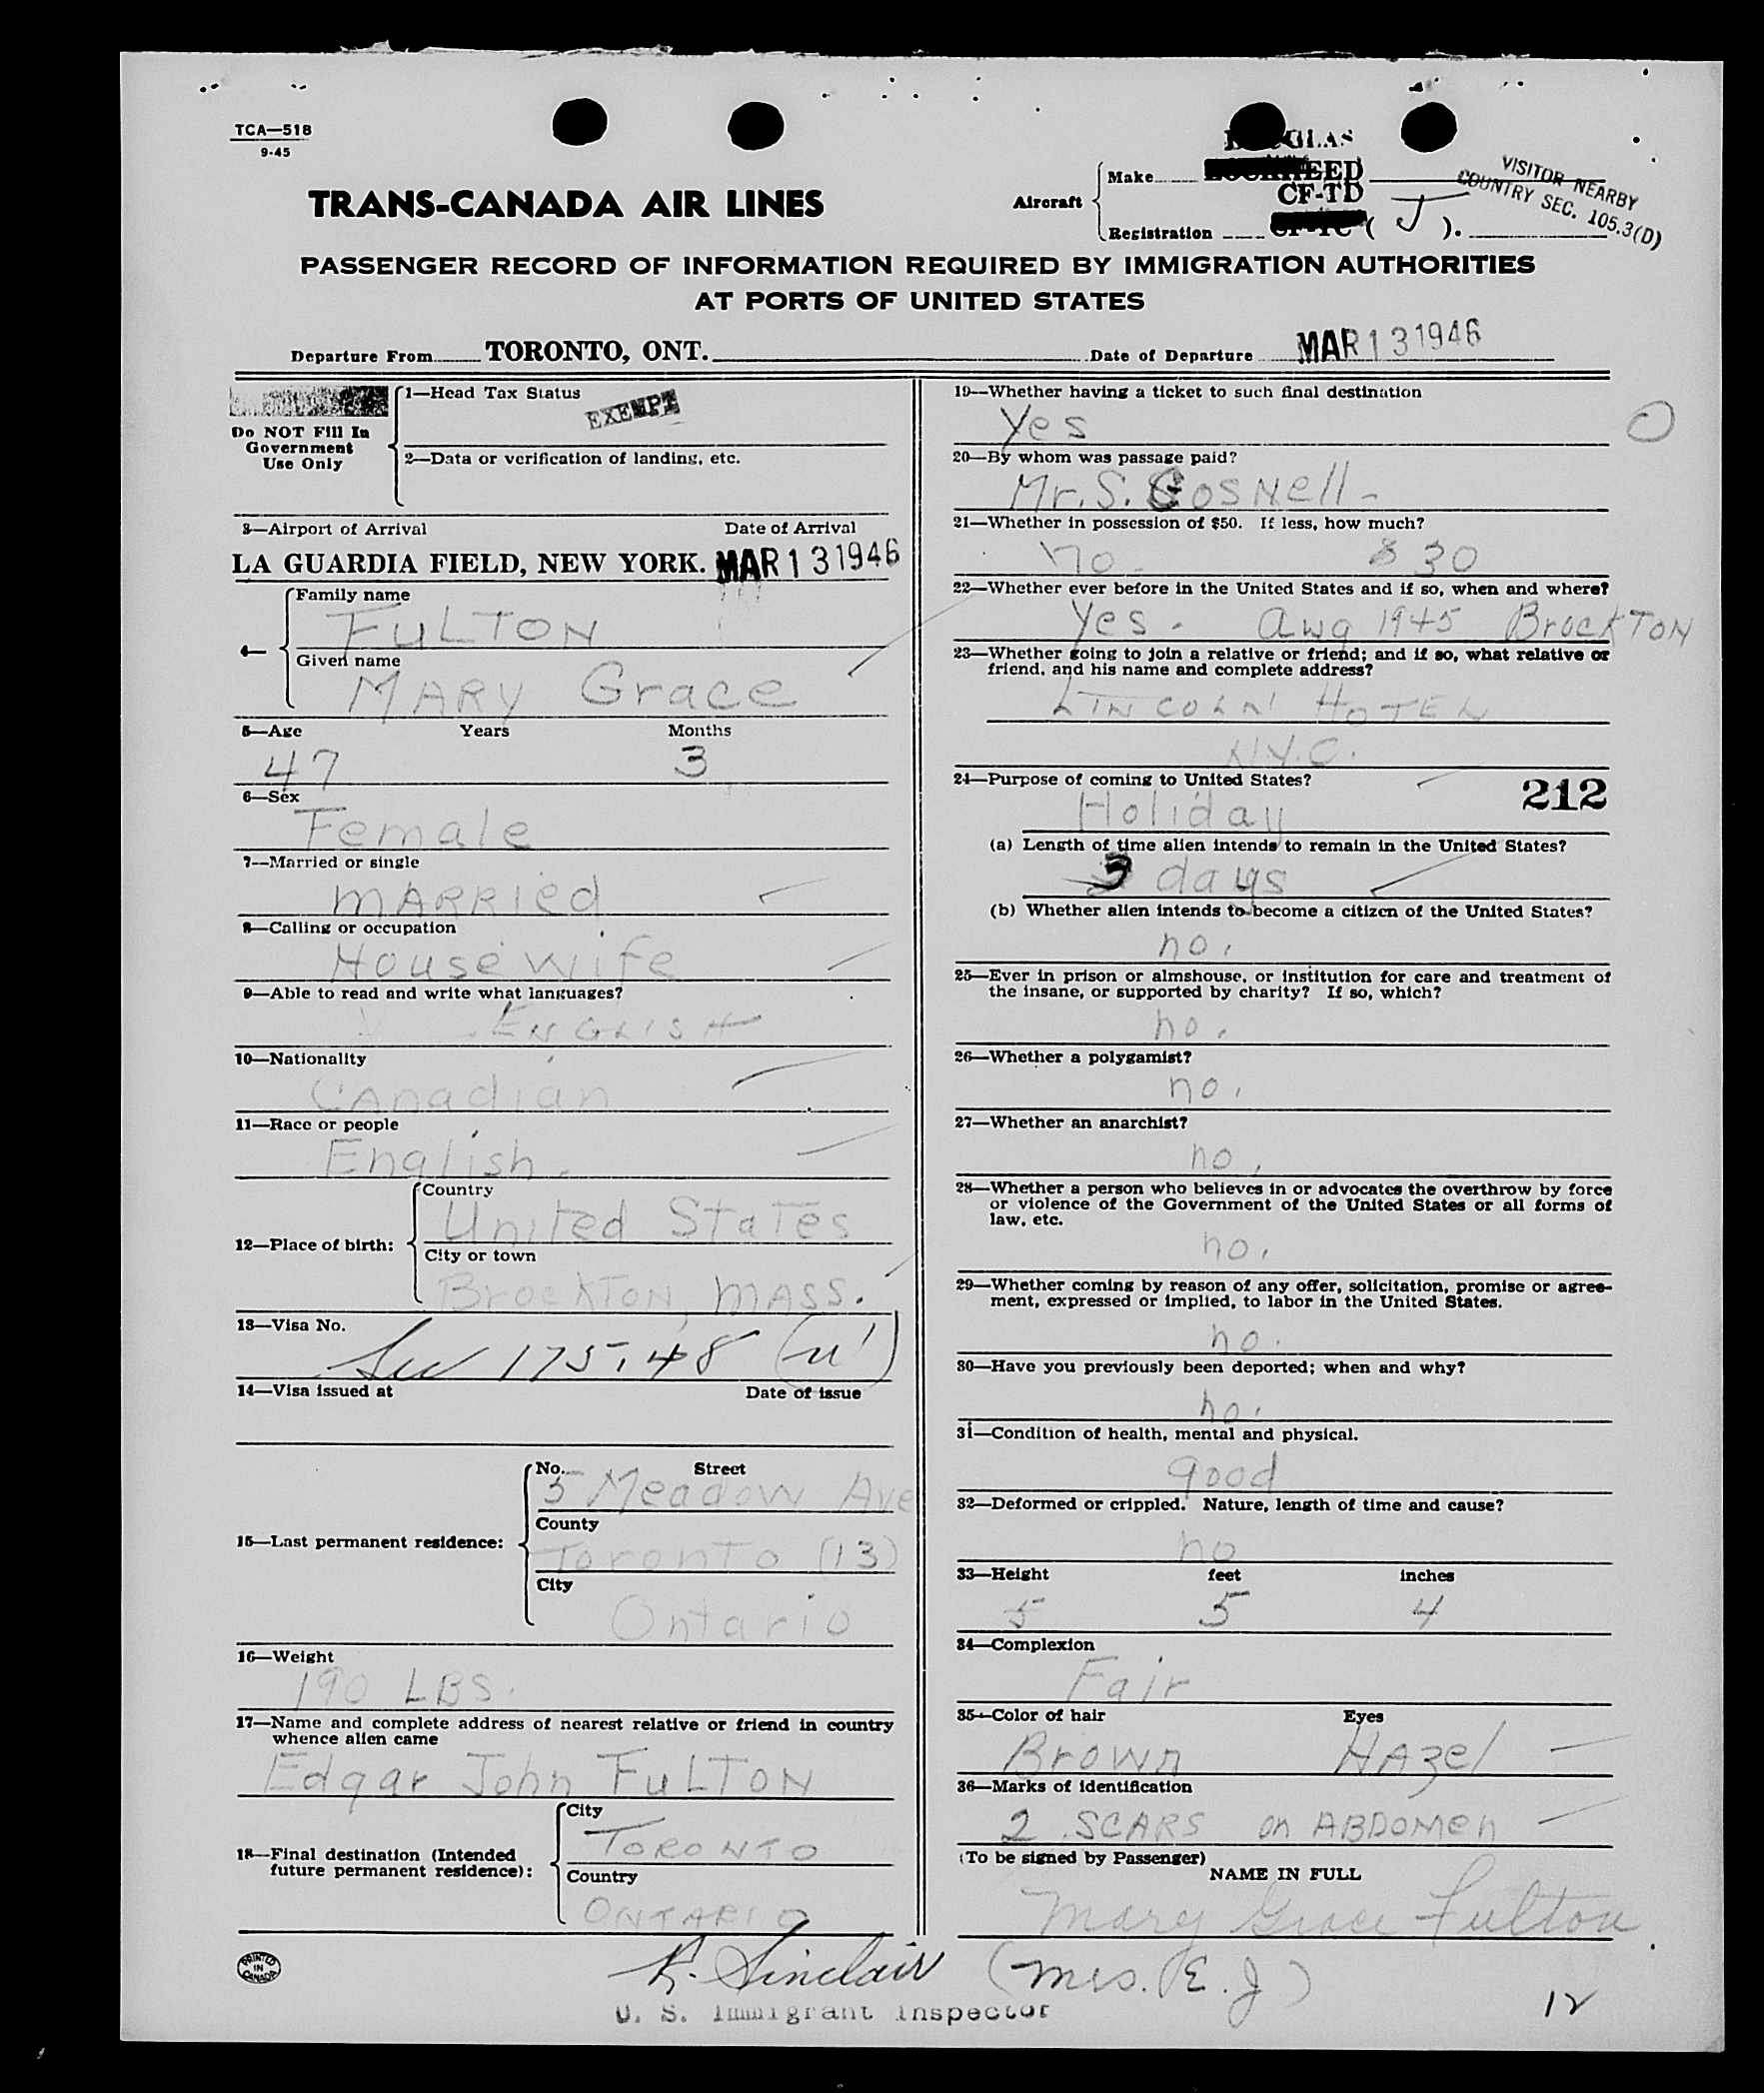 TCA—518
9-45
TRANS-CANADA AIR LINES
Aircraft
Make
CF-TD
Registration
( J ).
VISITOR NEARBY
COUNTRY SEC. 105.3(D)
PASSENGER RECORD OF INFORMATION REQUIRED BY IMMIGRATION AUTHORITIES
AT PORTS OF UNITED STATES
Departure From TORONTO, ONT. Date of Departure MAR 13 1946
Do NOT Fill In
Government
Use Only
1—Head Tax Status
EXEMPT
2—Data or verification of landing, etc.
3—Airport of Arrival Date of Arrival
LA GUARDIA FIELD, NEW YORK. MAR 13 1946
4—
Family name
FULTON
Given name
MARY Grace
5—Age Years Months
47 3
6—Sex
Female
7—Married or single
MARRied
8—Calling or occupation
Housewife
9—Able to read and write what languages?
ENGLISH
10—Nationality
Canadian
11—Race or people
English.
12—Place of birth:
Country
United States
City or town
Brockton, MASS.
13—Visa No.
175.48
14—Visa issued at Date of issue
15—Last permanent residence:
No. Street
5 Meadow Ave
County
Toronto (13)
City
Ontario
16—Weight
190 LBS.
17—Name and complete address of nearest relative or friend in country
whence alien came
Edgar John FULTON
18—Final destination (Intended
future permanent residence):
City
TORONTO
Country
ONTARIO
PRINTED
IN
CANADA
19—Whether having a ticket to such final destination
Yes
20—By whom was passage paid?
Mr. S. Gosnell-
21—Whether in possession of $50. If less, how much?
no- $ 30
22—Whether ever before in the United States and if so, when and where?
Yes - Aug 1945 Brockton
23—Whether going to join a relative or friend; and if so, what relative or
friend, and his name and complete address?
LINCOLN HOTEL
N.Y.C.
24—Purpose of coming to United States?
Holiday
212
(a) Length of time alien intends to remain in the United States?
3 days
(b) Whether alien intends to become a citizen of the United States?
no.
25—Ever in prison or almshouse, or institution for care and treatment of
the insane, or supported by charity? If so, which?
no.
26—Whether a polygamist?
no.
27—Whether an anarchist?
no.
28—Whether a person who believes in or advocates the overthrow by force
or violence of the Government of the United States or all forms of
law, etc.
no.
29—Whether coming by reason of any offer, solicitation, promise or agree-
ment, expressed or implied, to labor in the United States.
no.
30—Have you previously been deported; when and why?
no.
31—Condition of health, mental and physical.
good
32—Deformed or crippled. Nature, length of time and cause?
no
33—Height feet inches
5 5 4
34—Complexion
Fair
35—Color of hair Eyes
Brown HAzel
36—Marks of identification
2 SCARS on ABDOMEN
(To be signed by Passenger)
NAME IN FULL
Mary Grace Fulton
(Mrs. E. J)
R. Sinclair
U. S. Immigrant Inspector
12